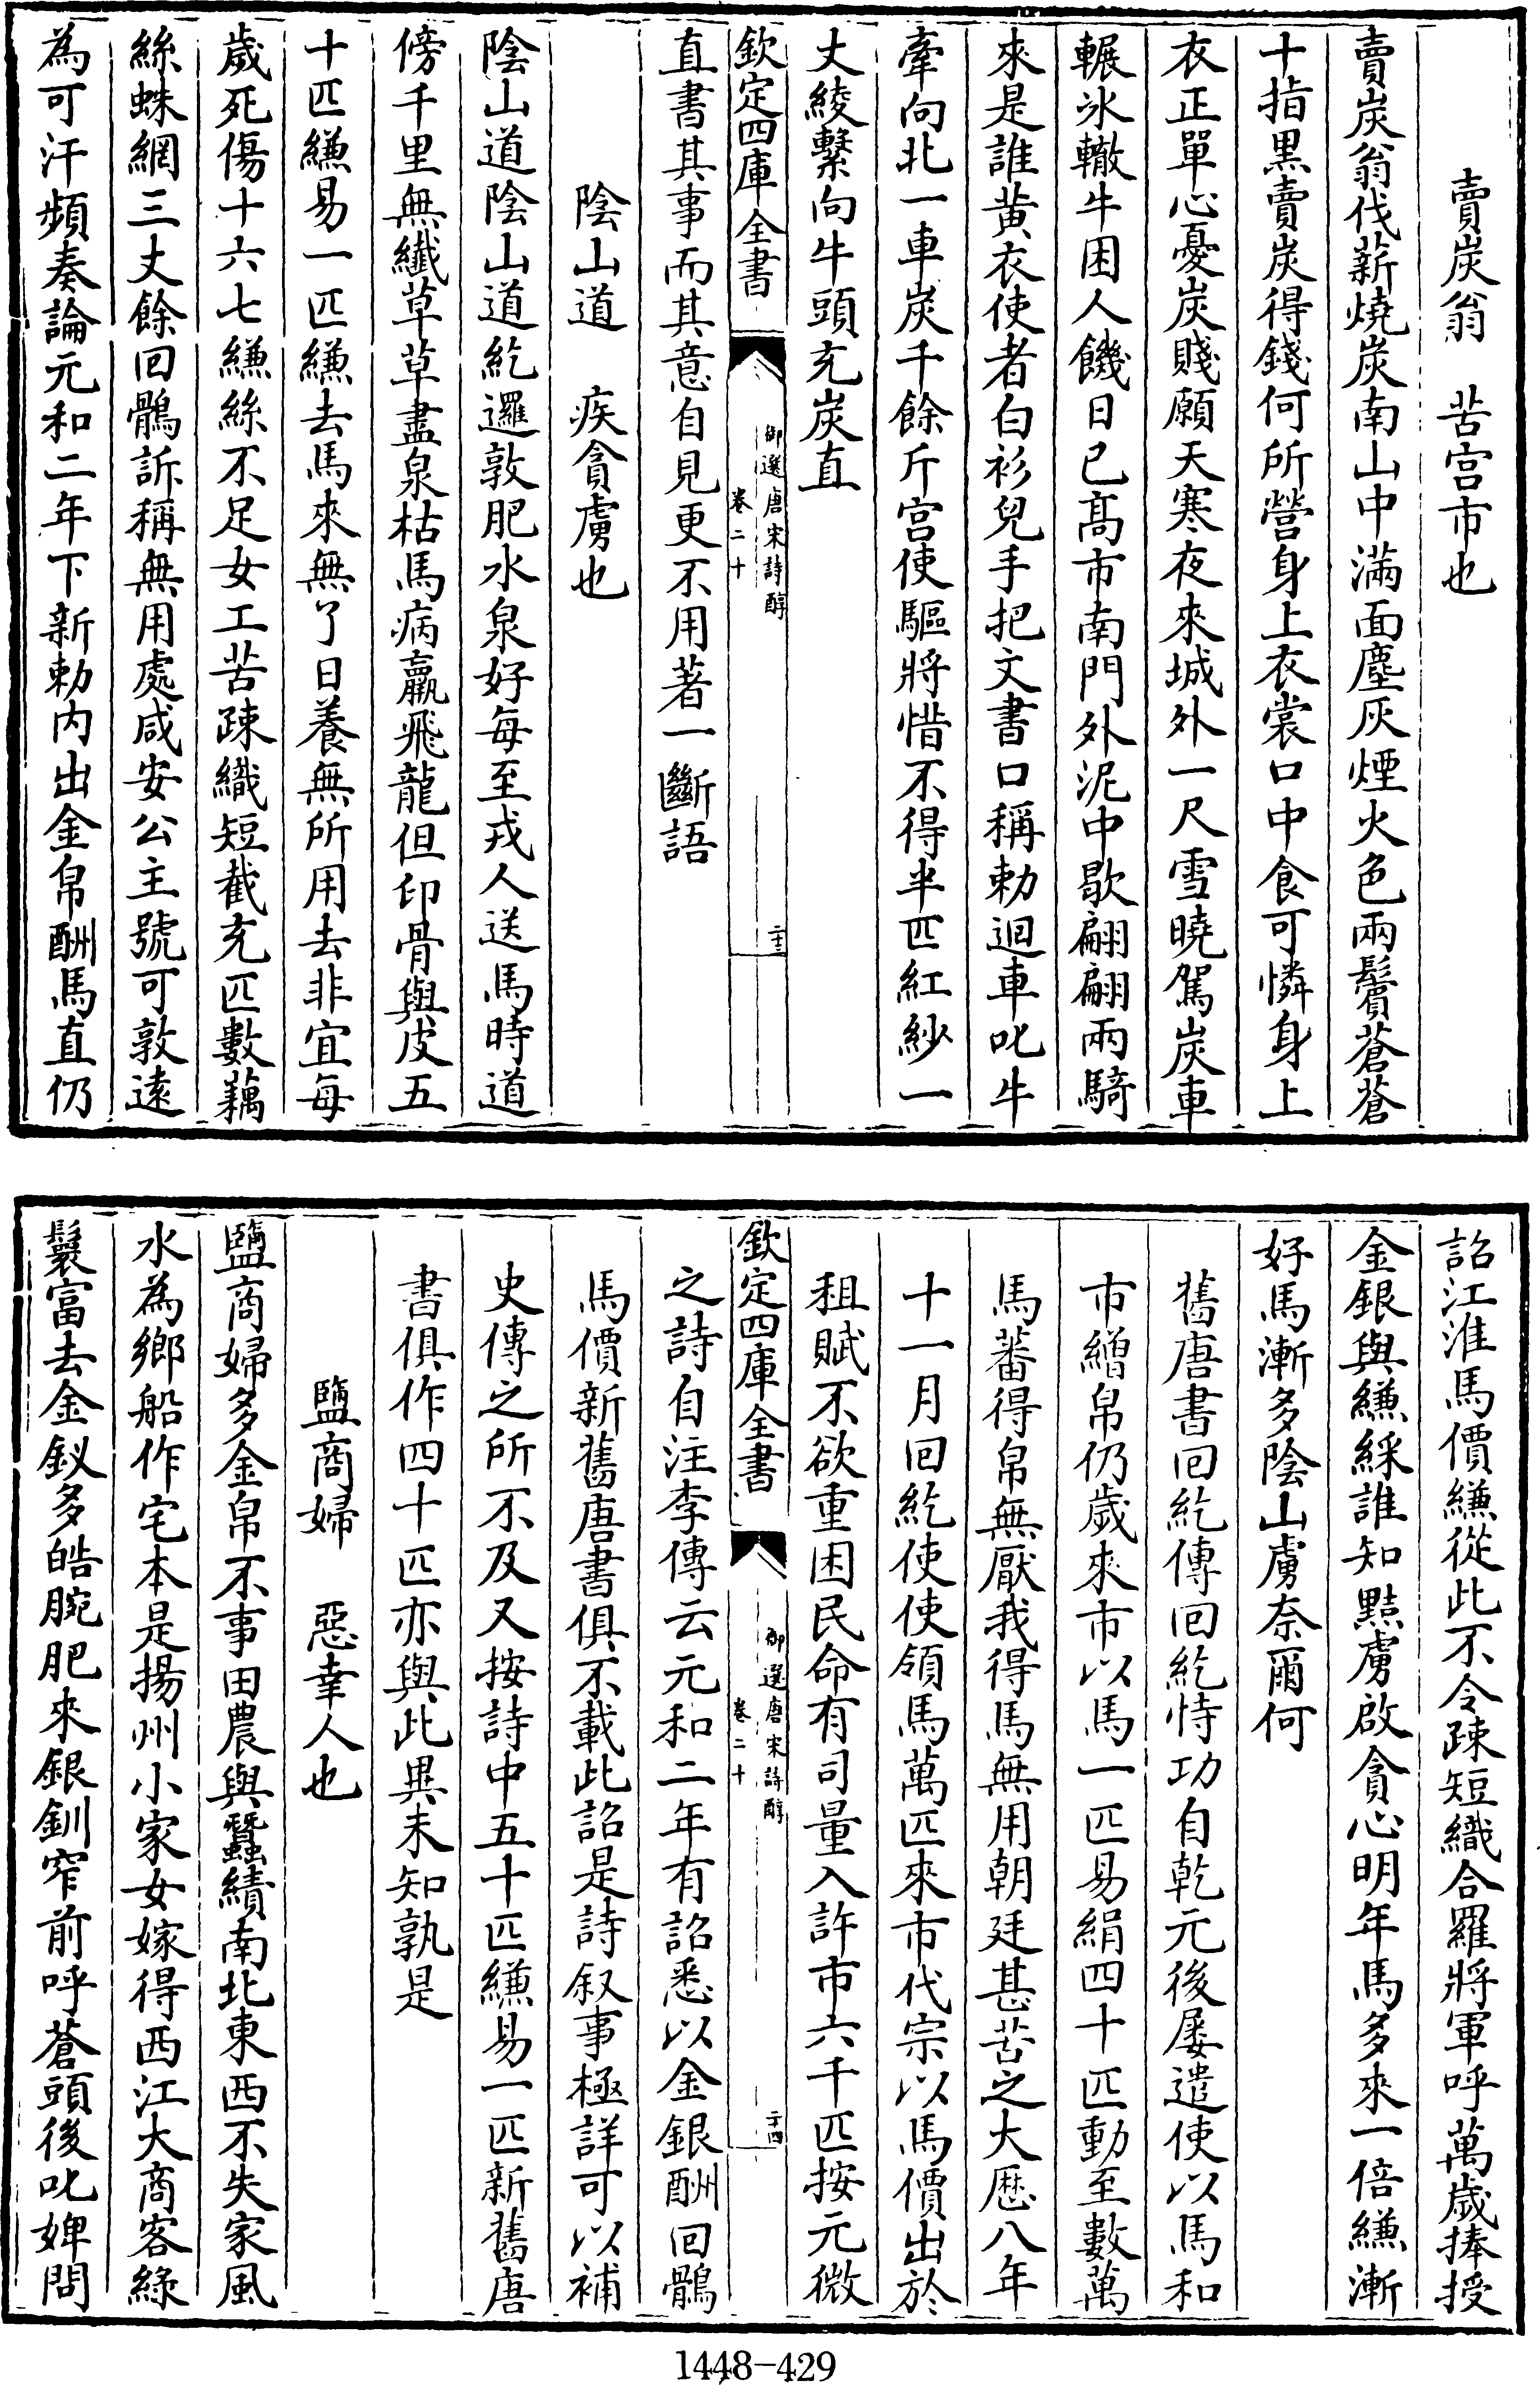 賣炭翁　苦宫市也
賣炭翁伐薪燒炭南山中滿面塵灰煙火色兩鬢蒼蒼
十指黒賣炭得錢何所營身上衣裳口中食可憐身上
衣正單心憂炭賤願天寒夜來城外一尺雪曉駕炭車
輾氷轍牛困人饑日已髙市南門外泥中歇翩翩兩騎
來是誰黄衣使者白衫兒手把文書口稱勅迴車叱牛
牽向北一車炭千餘斤宫使驅將惜不得半匹紅紗一
丈綾繫向牛頭充炭直
欽定四庫全書
御選唐宋詩醇
卷二十
二十三
直書其事而其意自見更不用著一斷語
陰山道　疾貪虜也
陰山道陰山道紇邏敦肥水泉好每至戎人送馬時道
傍千里無纖草草盡泉枯馬病羸飛龍但印骨與皮五
十匹縑易一匹縑去馬來無了日養無所用去非宜每
歲死傷十六七縑絲不足女工苦疎織短截充匹數藕
絲蛛網三丈餘回鶻訴稱無用處咸安公主號可敦逺
為可汗頻奏論元和二年下新勅内出金帛酬馬直仍
詔江淮馬價縑從此不令疎短織合羅將軍呼萬歲捧授
金銀與縑綵誰知黠虜啟貪心明年馬多來一倍縑漸
好馬漸多陰山虜奈爾何
舊唐書回紇傳回紇恃功自乾元後屢遣使以馬和
市繒帛仍歲來市以馬一匹易絹四十匹動至數萬
馬蕃得帛無厭我得馬無用朝廷甚苦之大厯八年
十一月回紇使使領馬萬匹來市代宗以馬價出於
租賦不欲重困民命有司量入許市六千匹按元微
欽定四庫全書
御選唐宋詩醇
卷二十
二十四
之詩自注李傳云元和二年有詔悉以金銀酬回鶻
馬價新舊唐書俱不載此詔是詩叙事極詳可以補
史傳之所不及又按詩中五十匹縑易一匹新舊唐
書俱作四十匹亦與此異未知孰是
鹽商婦　惡幸人也
鹽商婦多金帛不事田農與蠶績南北東西不失家風
水為鄉船作宅本是揚州小家女嫁得西江大商客綠
鬟富去金釵多皓腕肥來銀釧窄前呼蒼頭後叱婢問
1448-429